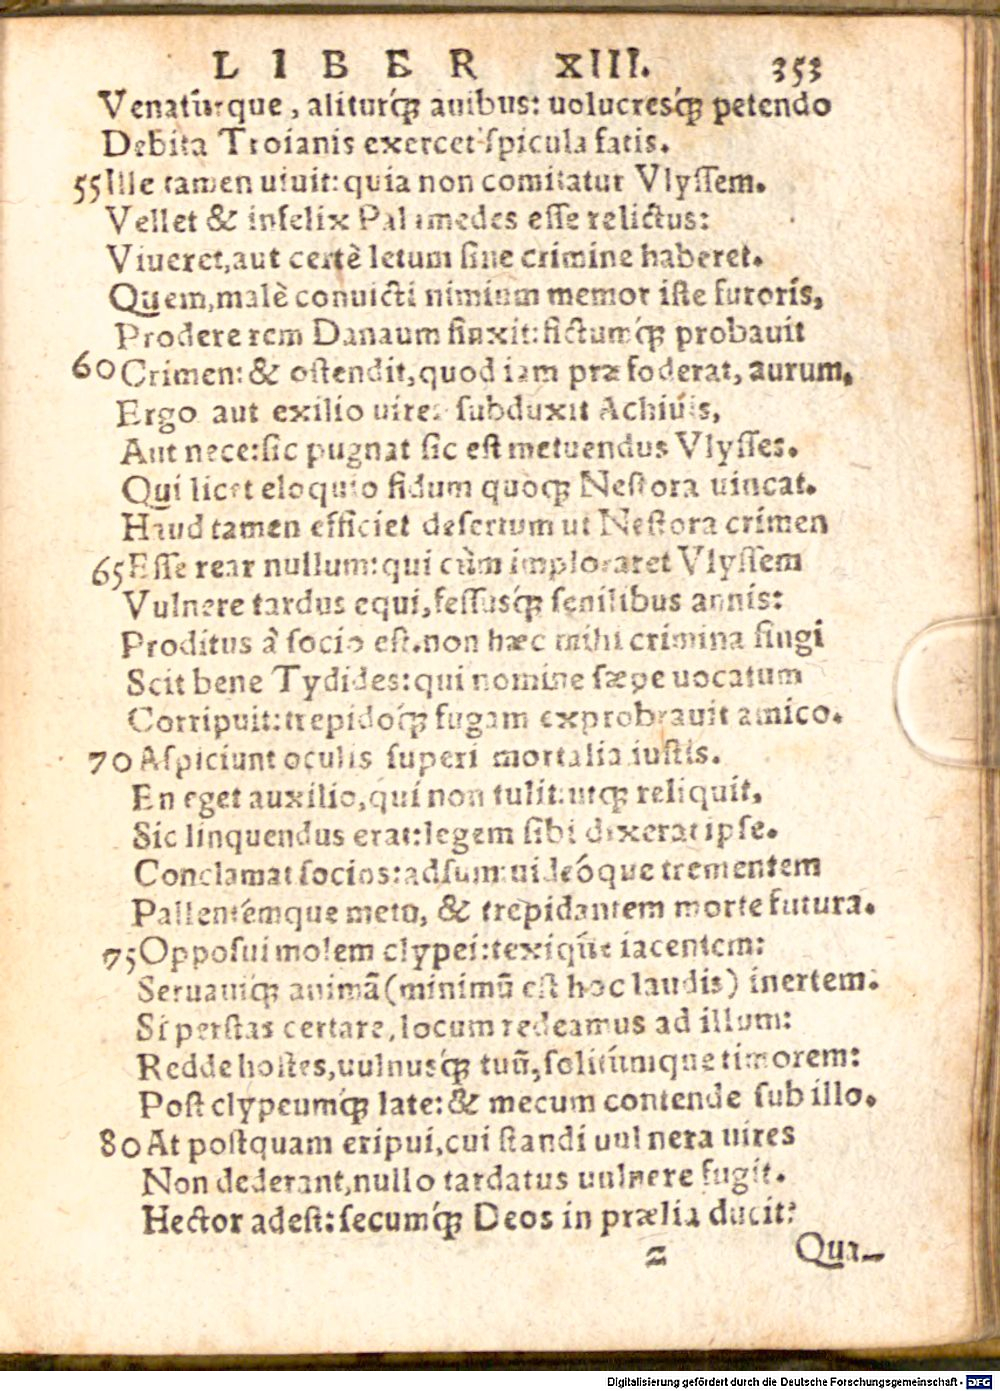 LIBER XIII. 353
Venatúrque, alitúrq́; auibus: uolucresq́; petendo
Debita Troianis exercet spicula fatis.
55 Ille tamen uiuit: quia non comitatur Vlyssem.
Vellet & infelix Palamedes esse relictus:
Viueret, aut certè letum sine crimine haberet.
Quem, malè conuicti nimium memor iste furoris,
Prodere rem Danaum finxit: fictumq́; probauit
60 Crimen: & ostendit, quod iam præfoderat, aurum.
Ergo aut exilio uires subduxit Achiuis,
Aut nece: sic pugnat sic est metuendus Vlysses.
Qui licet eloquio fidum quoq; Nestora uincat.
Haud tamen efficiet desertum ut Nestora crimen
65 Esse rear nullum: qui cùm imploraret Vlyssem
Vulnere tardus equi, fessusq́; senilibus annis:
Proditus à socio est. non hæc mihi crimina fingi
Scit bene Tydides: qui nomine sæpe uocatum
Corripuit: trepidoq́; fugam exprobrauit amico.
70 Aspiciunt oculis superi mortalia iustis.
En eget auxilio, qui non tulit: utq; reliquit,
Sic linquendus erat: legem sibi dixerat ipse.
Conclamat socios: adsum: uideóque trementem
Pallentémque metu, & trepidantem morte futura.
75 Opposui molem clypei: texiq́ue iacentem:
Seruauiq́; animã (minimũ est hoc laudis) inertem:
Si perstas certare, locum redeamus ad illum:
Redde hostes, uulnusq́; tuũ, solitúmque timorem:
Post clypeumq́; late: & mecum contende sub illo.
80 At postquam eripui, cui standi uulnera uires
Non dederant, nullo tardatus uulnere fugit.
Hector adest: secumq́; Deos in prælia ducit:
z Qua-
Digitalisierung gefördert durch die Deutsche Forschungsgemeinschaft - DFG